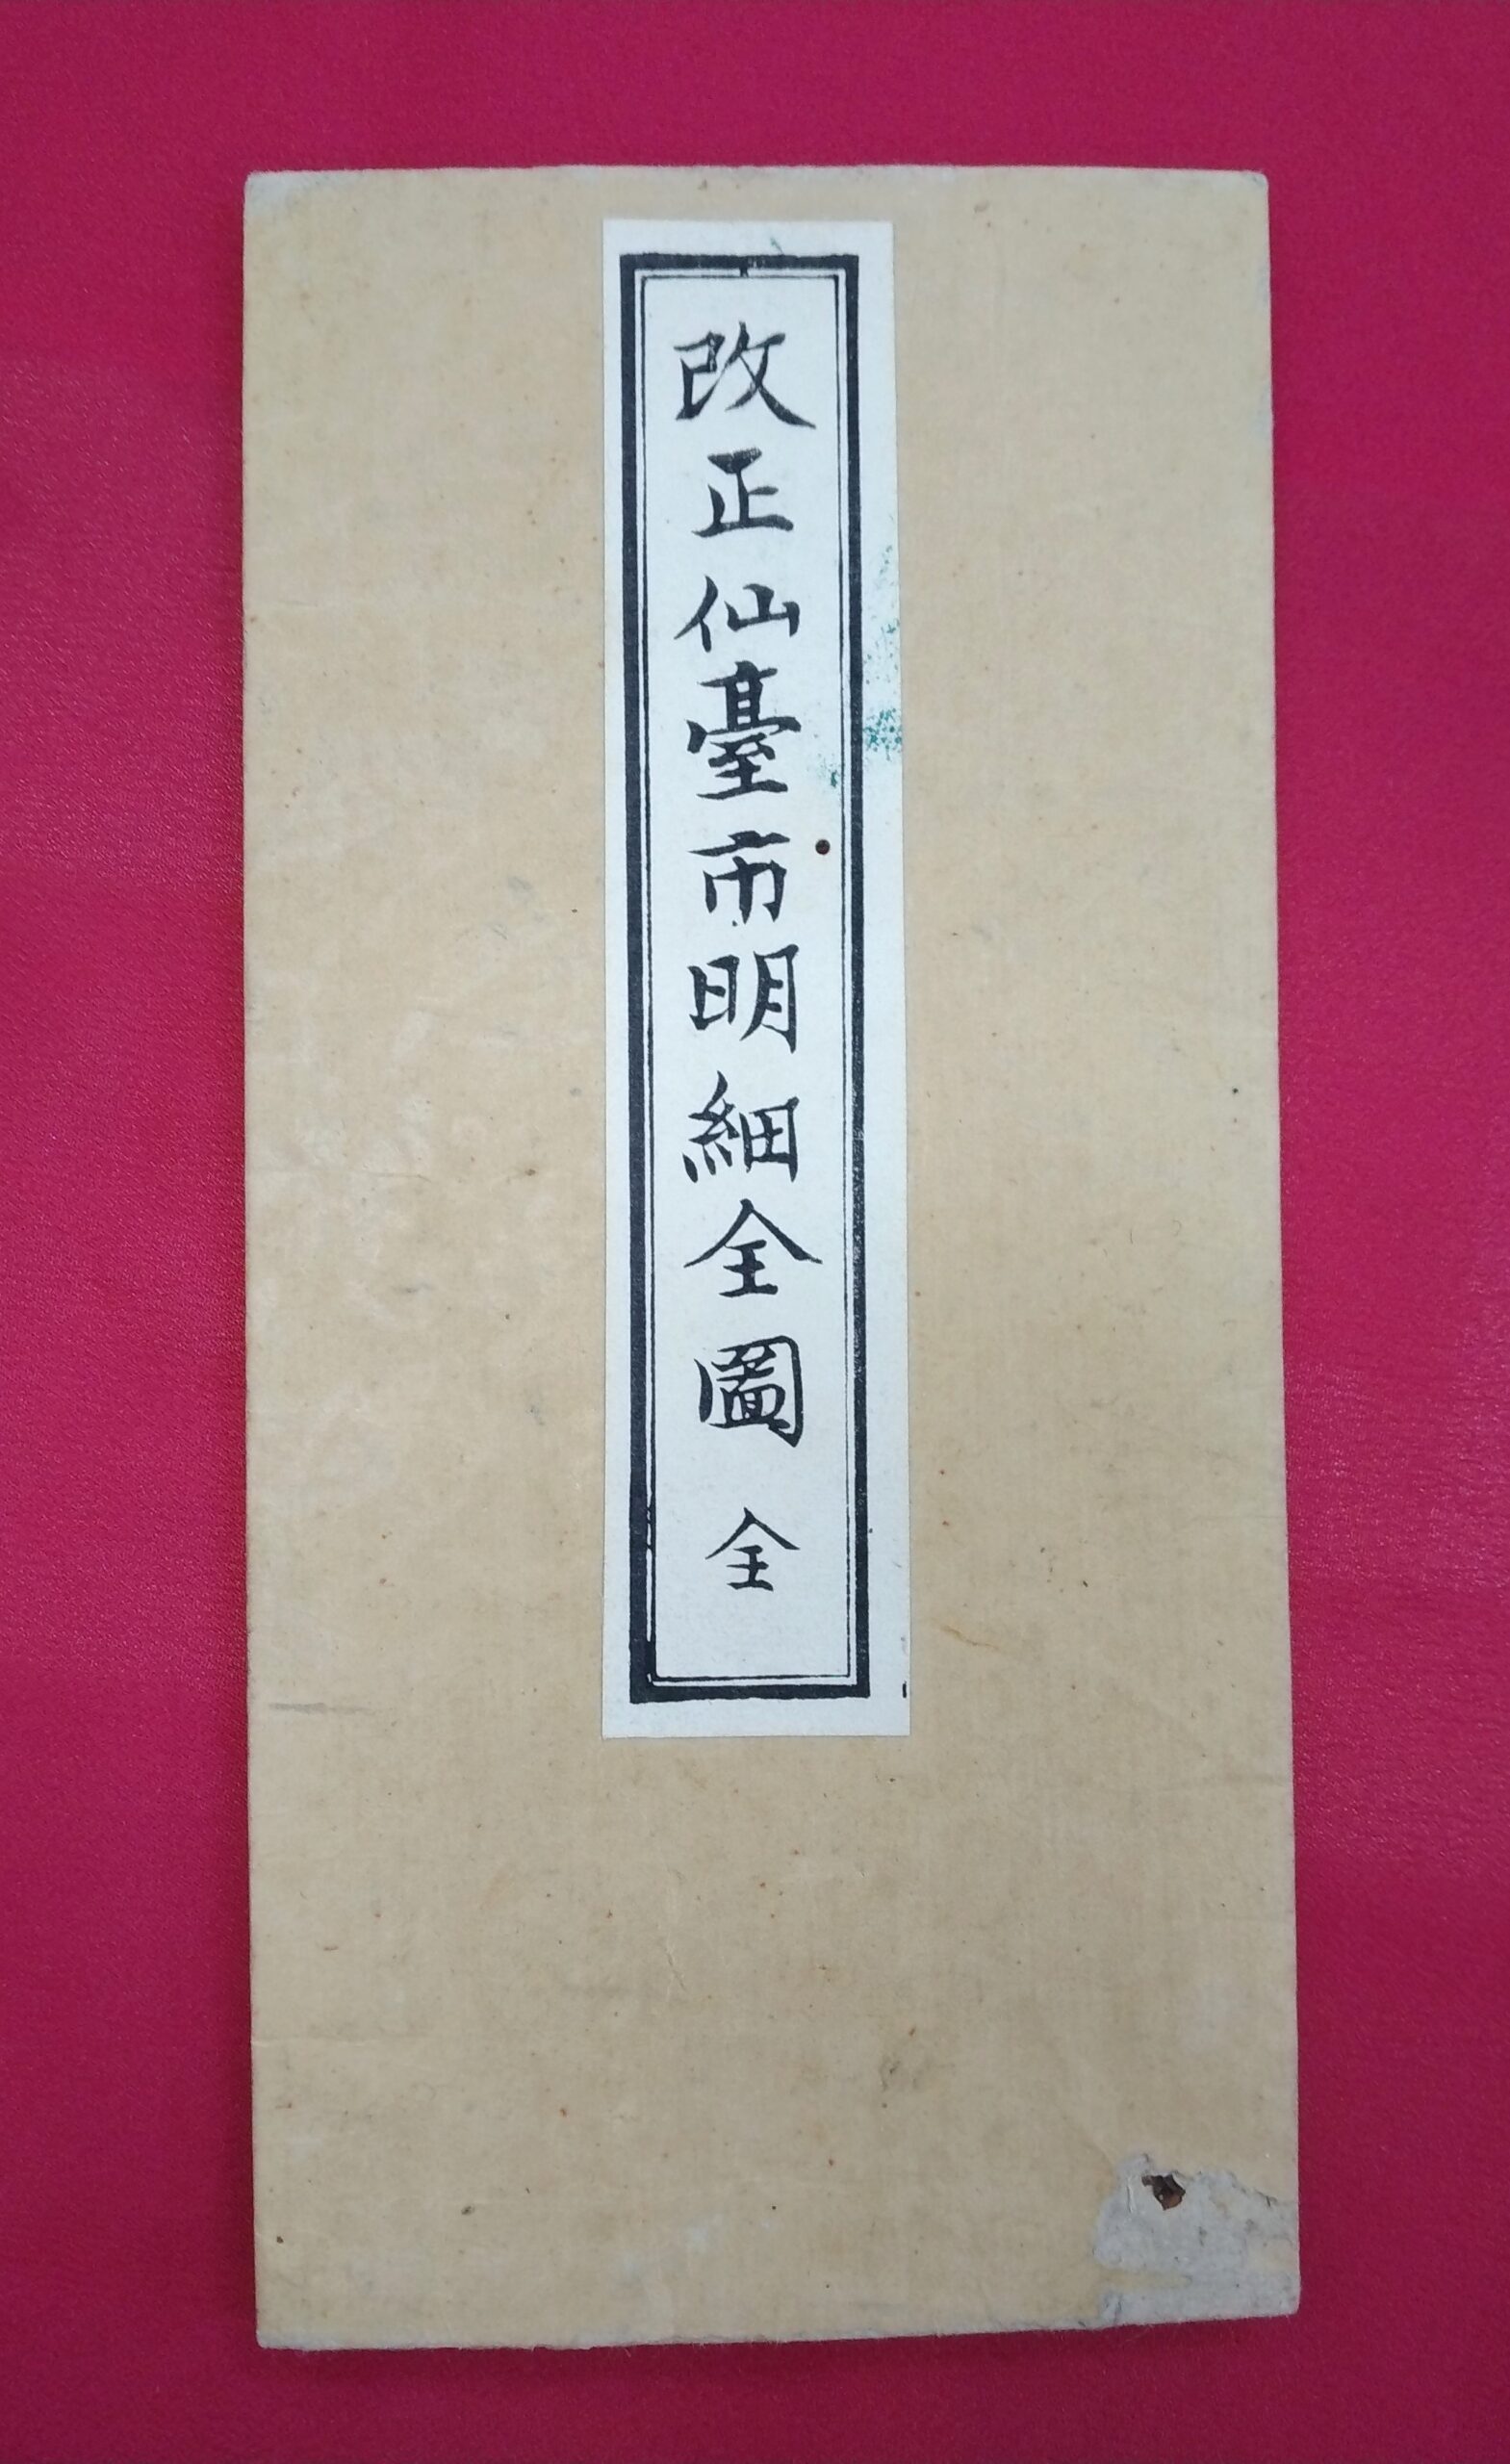 改正仙臺市明細全圖 全